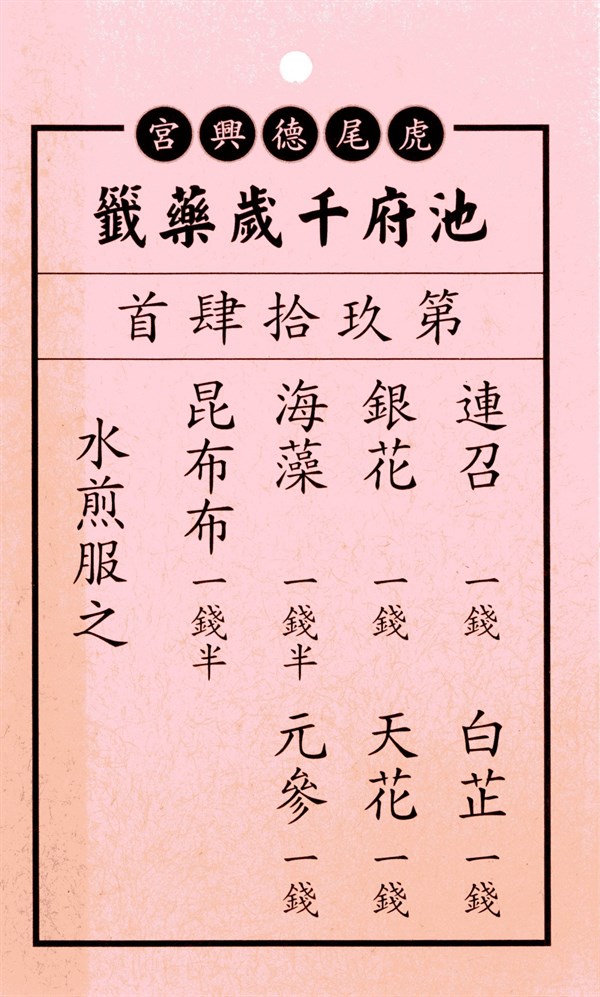 虎尾德興宮
池府千歲藥籤
第玖拾肆首
連召 一錢 白芷 一錢
銀花 一錢 天花 一錢
海藻 一錢半 元參 一錢
昆布布 一錢半
水煎服之